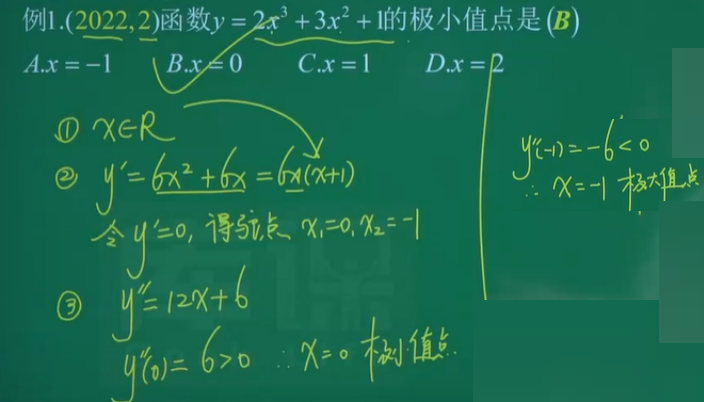 例1.(2022,2)函数y = 2x³ + 3x² + 1的极小值点是(B)
A.x = −1 B.x = 0 C.x = 1 D.x = 2
① x∈R
② y′= 6x² + 6x = 6x(x+1)
令 y′=0, 得驻点 x₁=0, x₂=-1
③ y″= 12x+6
y″(0)= 6>0 ∴ x=0 极小值点
y″(-1)= -6<0
∴ x=-1 极大值点